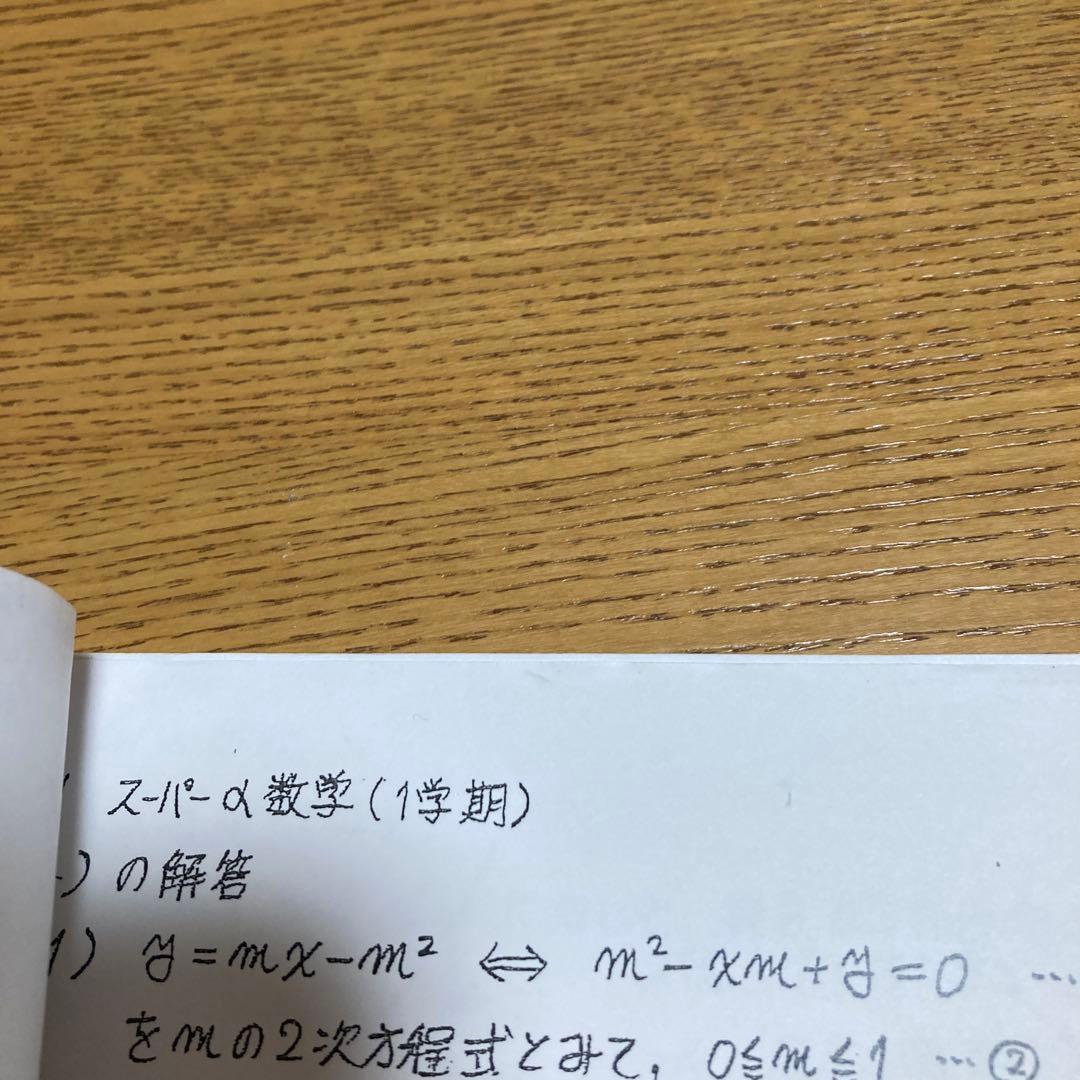 スーパーα数学(1学期)
)の解答
1) y=mx-m² ⇔ m²-xm+y=0 …
をmの2次方程式とみて, 0≦m≦1 …②